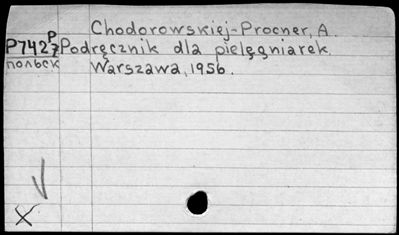 Chodorowskiej-Procner, A.
P
P7427 Podręcznik dla pielęgniarek.
польск Warszawa, 1956.